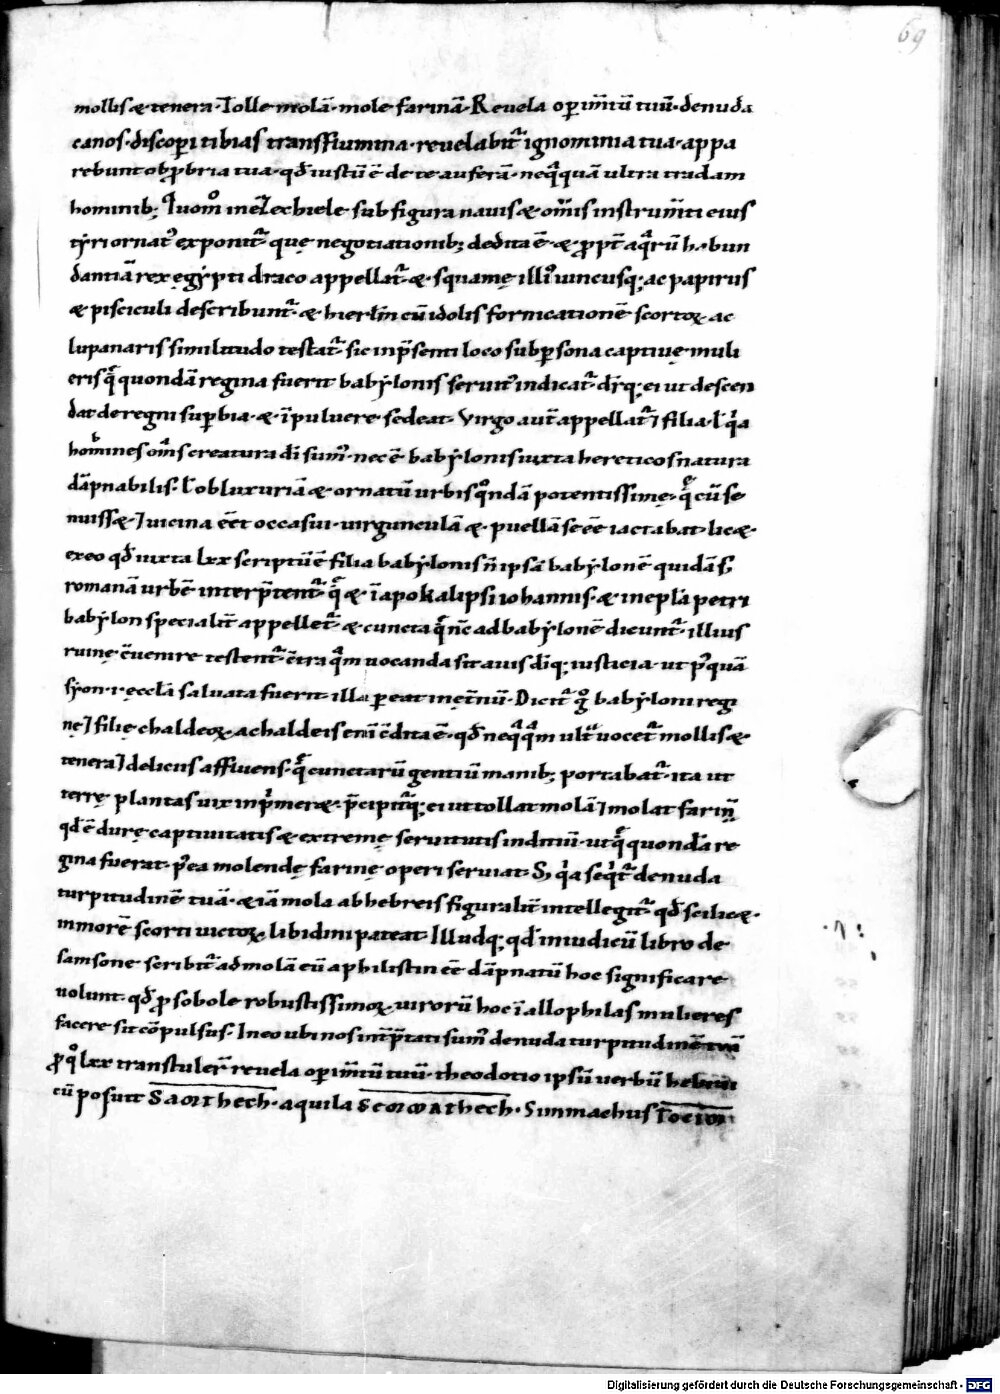 69
mollis & tenera · Tolle molā · mole farinā · Reuela opim̄tū tuū · denuda
canos · discopi tibias transi flumina · reuelabit᷑ ignominia tua · appa
rebunt obpbria tua · qđ iustū ē de te auferā · neq̄quā ultra tradam
hominib; Quom̊ in ezechiele sub figura nauis & om̄is instrum̄ti eius
tyri ornat᷒ exponit᷑ · quę negotiationib; dedita ē · & ppt̄ aq̄rū habun
dantiā rex ęgypti draco appellat᷑ & · squamę illi᷒ iuncusq; ac papirus
& pisciculi describunt᷑ · & hierłm cū idolis fornicationē scortoꝝ ac
lupanaris similitudo testat᷑ · sic in p̄senti loco sub psona captiuę muli
eris q̄ quondā regina fuerit babylonis seruit᷒ indicat᷑ · dr̄q; ei ut descen
dat de regni supbia · & ī puluere · sedeat · Virgo aut̄ appellat᷑ ⁊ filia · ł qa
homines om̄s creatura dī sum᷒ · nec ē babylonis iuxta hereticos natura
dāpnabilis · ł ob luxuriā & ornatū urbis qōndā potentissimę · q̄ cū se
nuiss& · ⁊ uicina eēt occasui · uirgunculā & · puellā se eē iactabat · lic& ·
ex eo qđ iuxta lxx scriptū ē filia babylonis n̄ ipsā babylonē quidā s;
romanā urbē interp̄tent᷑ · q̄ & ī apokalipsi iohannis · & in epła petri
babylon specialit̄ appellet᷑ · & cuncta q̄ nc̄ ad babylonē dicunt᷑ · illius
ruinę c̄uenire testent᷑ · c̄tra q̄m uocanda sit auis dīq; iusticia · ut p᷒quā
syon · i · eccłā saluata fuerit · illa pereat in ęt̄nū · Dicit᷑ g̊ babyloni regi
nę ⁊ filię chaldeoꝝ · a chaldeis enī c̄dita ē · qđ neq̄q̄m ult̄ uocet᷑ mollis & ·
tenera ⁊ deliciis affluens · q̄ cunctarū gentiū manib; portabat᷑ · ita ut
terrę plantas uix inp̄mer& · p̄cipit᷑q; ei ut tollat molā ⁊ molat farinā
qđ ē durę captiuitatis & extremę seruitutis inditiū · ut q̄ quondā re
gina fuerat · p᷒ea molendę farinę operi seruiat · S; qa seqt᷑ denuda
turpitudinē tuā · & iā mola ab hebreis figuralit̄ intellegit᷑ · qđ scilic& ·
in morē scorti uictoꝝ · libidini pateat · Illudq; qđ in iudicū libro de
samsone scribit᷑ ad molā eū a philistin eē dāpnatū hoc significare
uolunt · qđ p sobole robustissimoꝝ uirorū hoc ī allophilas mulieres
facere sit cōpulsus · In eo ubi nos int̄p̄tati sum᷒ denuda turpitudinē tuā
p q̊ lxx transtuler᷑ reuela opim̄tū tuū · theodotio ipsū uerbū hebrai
cū posuit Samthech · aquila Semmathech · Simmachus